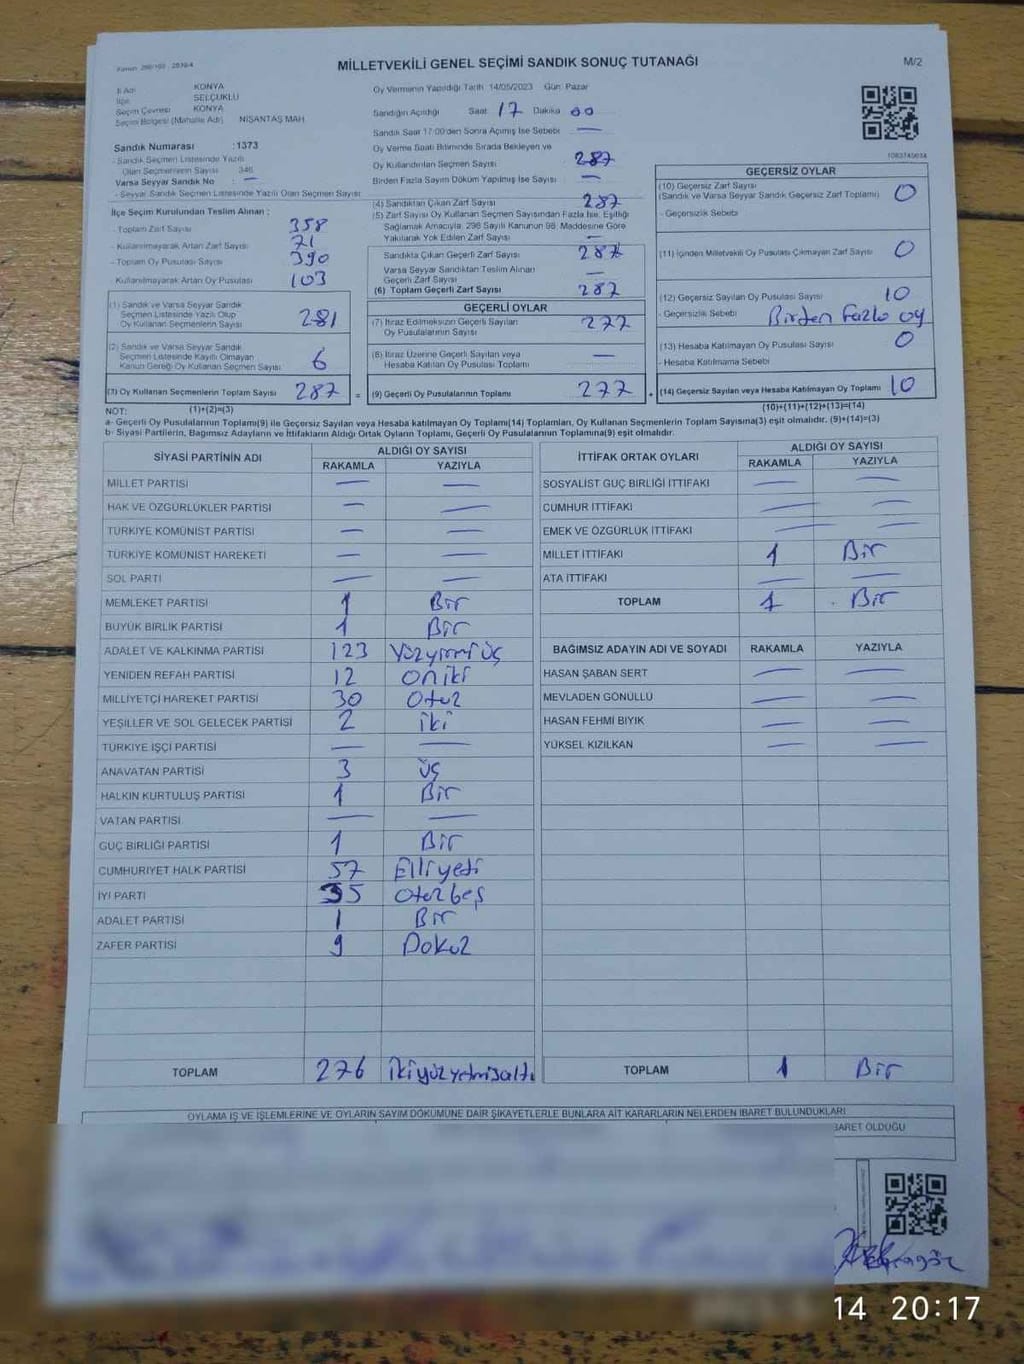 MİLLETVEKİLİ GENEL SEÇİMİ SANDIK SONUÇ TUTANAĞI
M/2
İl Adı KONYA
İlçe SELÇUKLU
Seçim Çevresi KONYA
Seçim Bölgesi (Mahalle Adı) NİŞANTAŞ MAH.
Sandık Numarası :1373
- Sandık Seçmen Listesinde Yazılı
Olan Seçmenlerin Sayısı 346
Varsa Seyyar Sandık No —
- Seyyar Sandık Seçmen Listesinde Yazılı Olan Seçmen Sayısı
İlçe Seçim Kurulundan Teslim Alınan :
- Toplam Zarf Sayısı 358
- Kullanılmayarak Artan Zarf Sayısı 71
- Toplam Oy Pusulası Sayısı 390
- Kullanılmayarak Artan Oy Pusulası 103
(1) Sandık ve Varsa Seyyar Sandık
Seçmen Listesinde Yazılı Olup
Oy Kullanan Seçmenlerin Sayısı 281
(2) Sandık ve Varsa Seyyar Sandık
Seçmen Listesinde Kayıtlı Olmayan
Kanun Gereği Oy Kullanan Seçmen Sayısı 6
(3) Oy Kullanan Seçmenlerin Toplam Sayısı 287 =
Oy Vermenin Yapıldığı Tarih 14/05/2023 Gün: Pazar
Sandığın Açıldığı Saat 17 Dakika 00
Sandık Saat 17:00'den Sonra Açılmış İse Sebebi —
Oy Verme Saati Bitiminde Sırada Bekleyen ve
Oy Kullandırılan Seçmen Sayısı 287
Birden Fazla Sayım Döküm Yapılmış İse Sayısı —
(4) Sandıktan Çıkan Zarf Sayısı 287
(5) Zarf Sayısı Oy Kullanan Seçmen Sayısından Fazla İse, Eşitliği
Sağlamak Amacıyla, 298 Sayılı Kanunun 98. Maddesine Göre
Yakılarak Yok Edilen Zarf Sayısı —
Sandıkta Çıkan Geçerli Zarf Sayısı 287
Varsa Seyyar Sandıktan Teslim Alınan
Geçerli Zarf Sayısı —
(6) Toplam Geçerli Zarf Sayısı 287
GEÇERLİ OYLAR
(7) İtiraz Edilmeksizin Geçerli Sayılan
Oy Pusulalarının Sayısı 277
(8) İtiraz Üzerine Geçerli Sayılan veya
Hesaba Katılan Oy Pusulası Toplamı —
(9) Geçerli Oy Pusulalarının Toplamı 277 +
1083745034
GEÇERSİZ OYLAR
(10) Geçersiz Zarf Sayısı
(Sandık ve Varsa Seyyar Sandık Geçersiz Zarf Toplamı) 0
- Geçersizlik Sebebi
(11) İçinden Milletvekili Oy Pusulası Çıkmayan Zarf Sayısı 0
(12) Geçersiz Sayılan Oy Pusulası Sayısı 10
- Geçersizlik Sebebi Birden fazla oy
(13) Hesaba Katılmayan Oy Pusulası Sayısı 0
- Hesaba Katılmama Sebebi
(14) Geçersiz Sayılan veya Hesaba Katılmayan Oy Toplamı 10
NOT: (1)+(2)=(3) (10)+(11)+(12)+(13)=(14)
a- Geçerli Oy Pusulalarının Toplamı(9) ile Geçersiz Sayılan veya Hesaba katılmayan Oy Toplamı(14) Toplamları, Oy Kullanan Seçmenlerin Toplam Sayısına(3) eşit olmalıdır. (9)+(14)=(3)
b- Siyasi Partilerin, Bağımsız Adayların ve İttifakların Aldığı Ortak Oyların Toplamı, Geçerli Oy Pusulalarının Toplamına(9) eşit olmalıdır.
SİYASİ PARTİNİN ADI ALDIĞI OY SAYISI
RAKAMLA YAZIYLA
MİLLET PARTİSİ — —
HAK VE ÖZGÜRLÜKLER PARTİSİ — —
TÜRKİYE KOMÜNİST PARTİSİ — —
TÜRKİYE KOMÜNİST HAREKETİ — —
SOL PARTİ — —
MEMLEKET PARTİSİ 1 Bir
BÜYÜK BİRLİK PARTİSİ 1 Bir
ADALET VE KALKINMA PARTİSİ 123 Yüzyirmi üç
YENİDEN REFAH PARTİSİ 12 oniki
MİLLİYETÇİ HAREKET PARTİSİ 30 Otuz
YEŞİLLER VE SOL GELECEK PARTİSİ 2 iki
TÜRKİYE İŞÇİ PARTİSİ — —
ANAVATAN PARTİSİ 3 üç
HALKIN KURTULUŞ PARTİSİ 1 Bir
VATAN PARTİSİ — —
GÜÇ BİRLİĞİ PARTİSİ 1 Bir
CUMHURİYET HALK PARTİSİ 57 Elliyedi
İYİ PARTİ 35 Otuzbeş
ADALET PARTİSİ 1 Bir
ZAFER PARTİSİ 9 Dokuz
TOPLAM 276 ikiyüzyetmişaltı
İTTİFAK ORTAK OYLARI ALDIĞI OY SAYISI
RAKAMLA YAZIYLA
SOSYALİST GÜÇ BİRLİĞİ İTTİFAKI — —
CUMHUR İTTİFAKI — —
EMEK VE ÖZGÜRLÜK İTTİFAKI — —
MİLLET İTTİFAKI 1 Bir
ATA İTTİFAKI — —
TOPLAM 1 Bir
BAĞIMSIZ ADAYIN ADI VE SOYADI RAKAMLA YAZIYLA
HASAN ŞABAN SERT — —
MEVLADEN GÖNÜLLÜ — —
HASAN FEHMİ BIYIK — —
YÜKSEL KIZILKAN — —
TOPLAM 1 Bir
OYLAMA İŞ VE İŞLEMLERİNE VE OYLARIN SAYIM DÖKÜMÜNE DAİR ŞİKAYETLERLE BUNLARA AİT KARARLARIN NELERDEN İBARET BULUNDUKLARI
BARET OLDUĞU
14 20:17